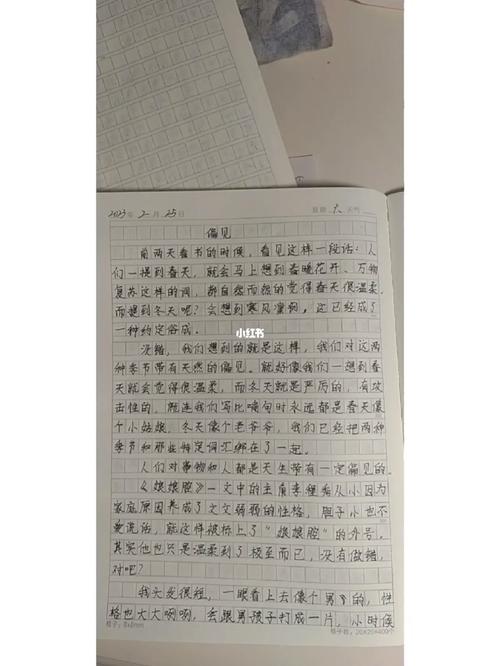 2023年 2 月 25日 星期 六 天气
偏见
前两天看书的时候，看见这样一段话：人
们一提到春天，就会马上想到春暖花开、万物
复苏这样的词，都自然而然的觉得春天很温柔。
而提到冬天呢？会想到寒风凛冽，这已经成了
一种约定俗成。
小红书
没错，我们想到的就是这样，我们对这两
种季节带有天然的偏见。就好像我们一想到春
天就会觉得很温柔，而冬天就是严厉的，有攻
击性的。就连我们写比喻句时永远都是春天像
个小姑娘，冬天像个老爷爷，我们已经把两种
季节和那些特定词汇绑在了一起。
人们对事物和人都是天生带有一定偏见的。
《娘娘腔》一文中的主角李程秀从小因为
家庭原因养成了文文弱弱的性格，胆子小也不
爱说话，就这样被标上了“娘娘腔”的外号。
其实他也只是温柔到了极至而已，没有做错，
对吧？
我头发很短，一眼看上去像个男的，性
格也大大咧咧，会跟男孩子打成一片，小时候
格子：8x8mm 格子数：20X20=400个